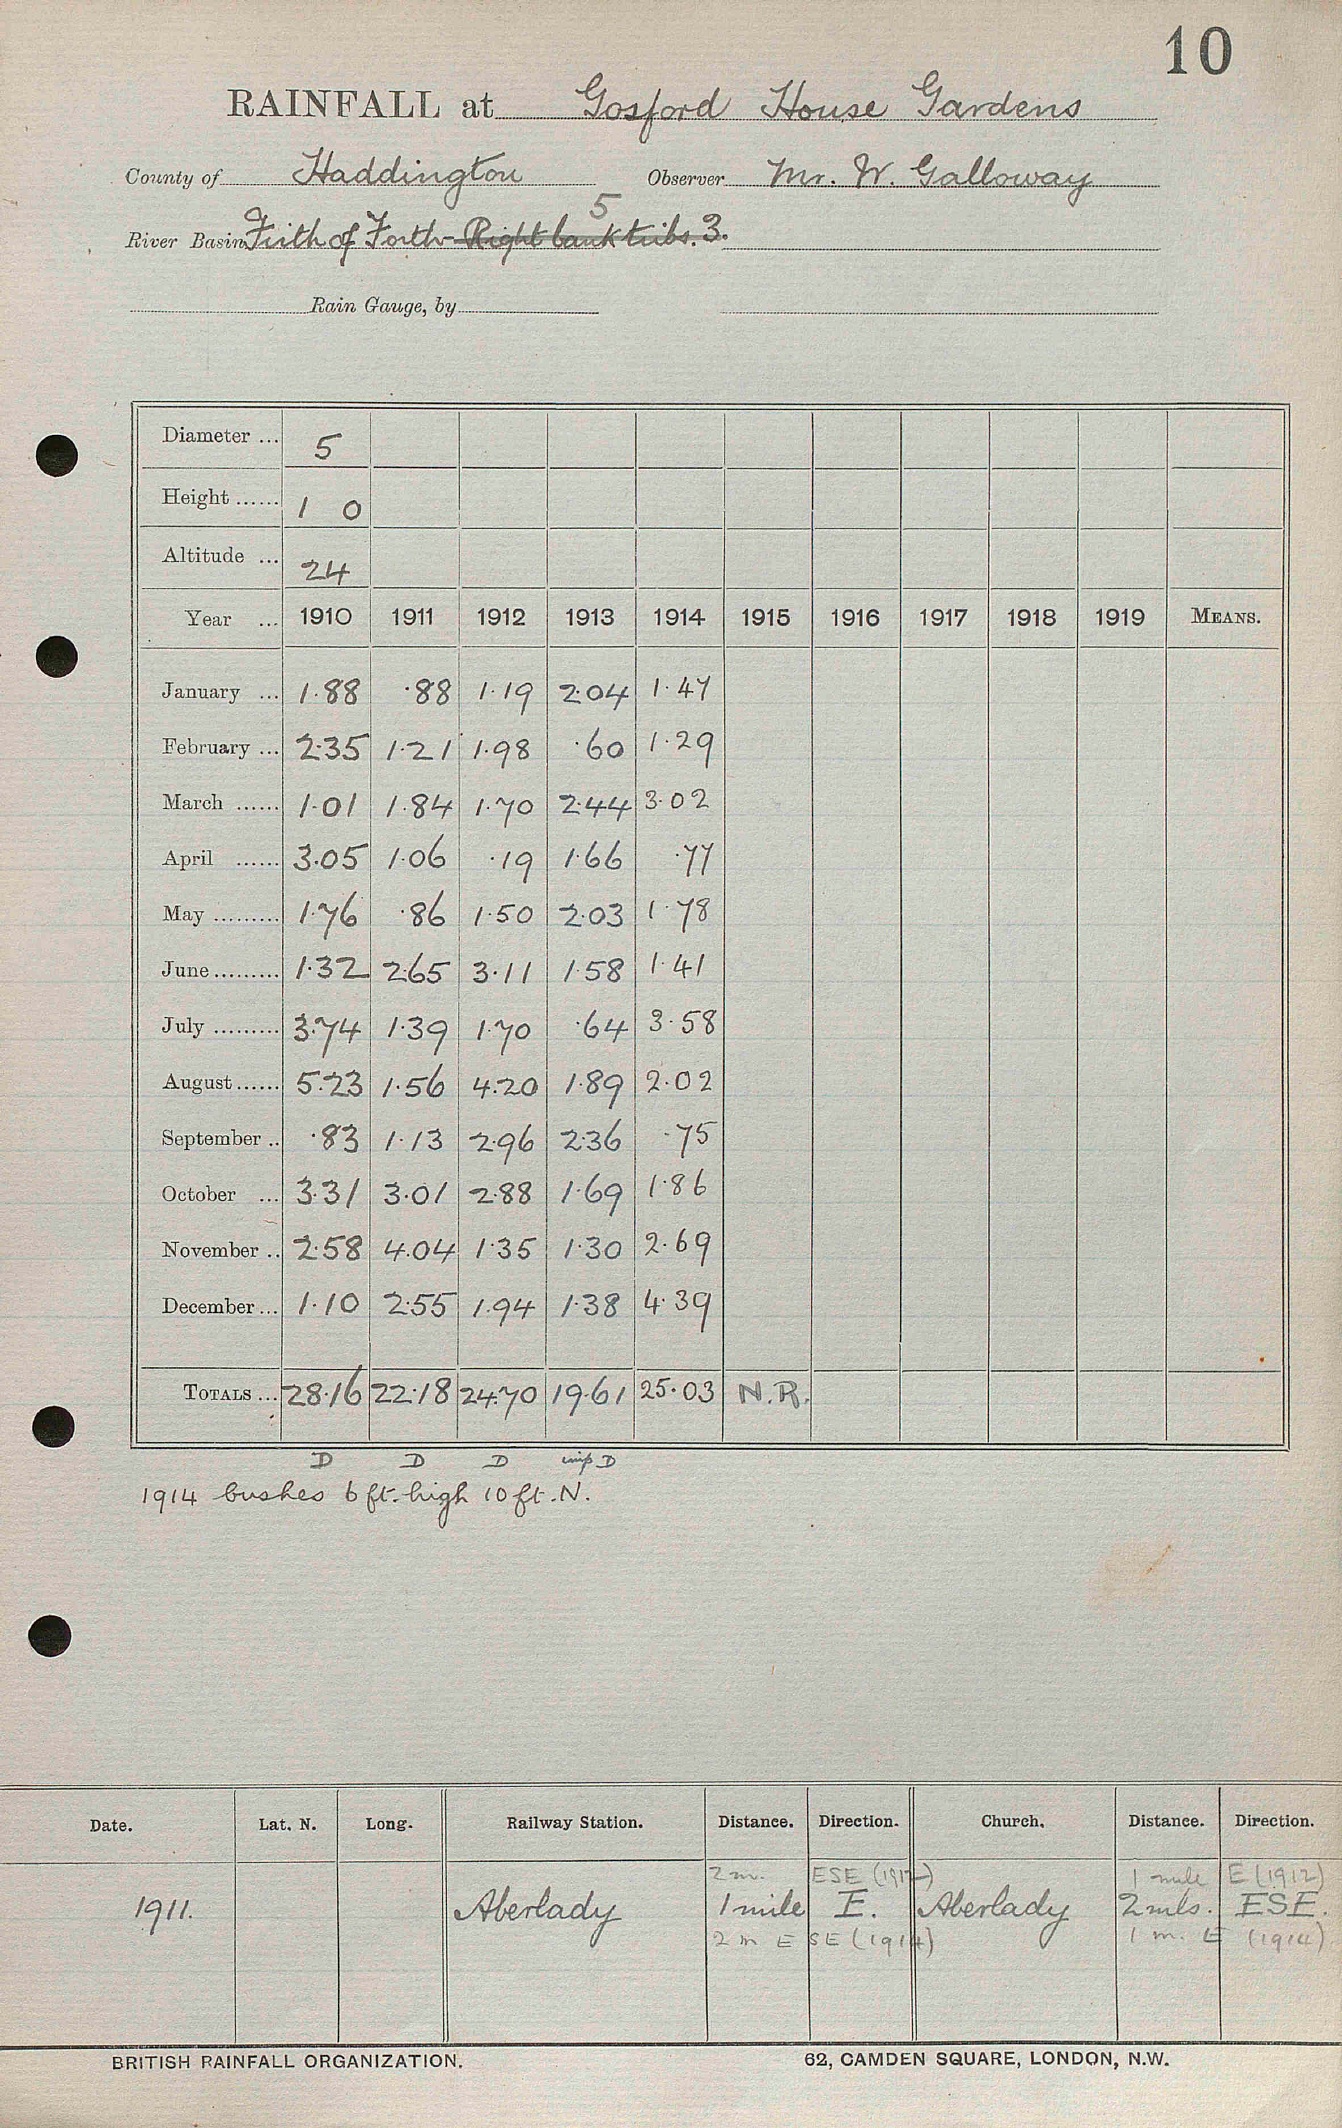 10
RAINFALL at Gosford House Gardens
County of Haddington Observer Mr. W. Galloway
5
River Basin Firth of Forth - Right bank tribs. 3.
Rain Gauge, by
Diameter ... 5
Height ...... 1 0
Altitude ... 24
Year ... 1910 1911 1912 1913 1914 1915 1916 1917 1918 1919 MEANS.
January ... 1.88 .88 1.19 2.04 1.47
February ... 2.35 1.21 1.98 .60 1.29
March ...... 1.01 1.84 1.70 2.44 3.02
April ...... 3.05 1.06 .19 1.66 .77
May ......... 1.76 .86 1.50 2.03 1.78
June ......... 1.32 2.65 3.11 1.58 1.41
July ......... 3.74 1.39 1.70 .64 3.58
August ...... 5.23 1.56 4.20 1.89 2.02
September .. .83 1.13 2.96 2.36 .75
October ... 3.31 3.01 2.88 1.69 1.86
November .. 2.58 4.04 1.35 1.30 2.69
December ... 1.10 2.55 1.94 1.38 4.39
TOTALS ... 28.16 22.18 24.70 19.61 25.03 N.R.
D D D imp D
1914 bushes 6 ft. high 10 ft. N.
Date. Lat. N. Long. Railway Station. Distance. Direction. Church. Distance. Direction.
2 m. ESE (1912) 1 mile E (1912)
1911. Aberlady 1 mile E. Aberlady 2 mls. ESE.
2 m E SE (1914) 1 m. E (1914)
BRITISH RAINFALL ORGANIZATION. 62, CAMDEN SQUARE, LONDON, N.W.